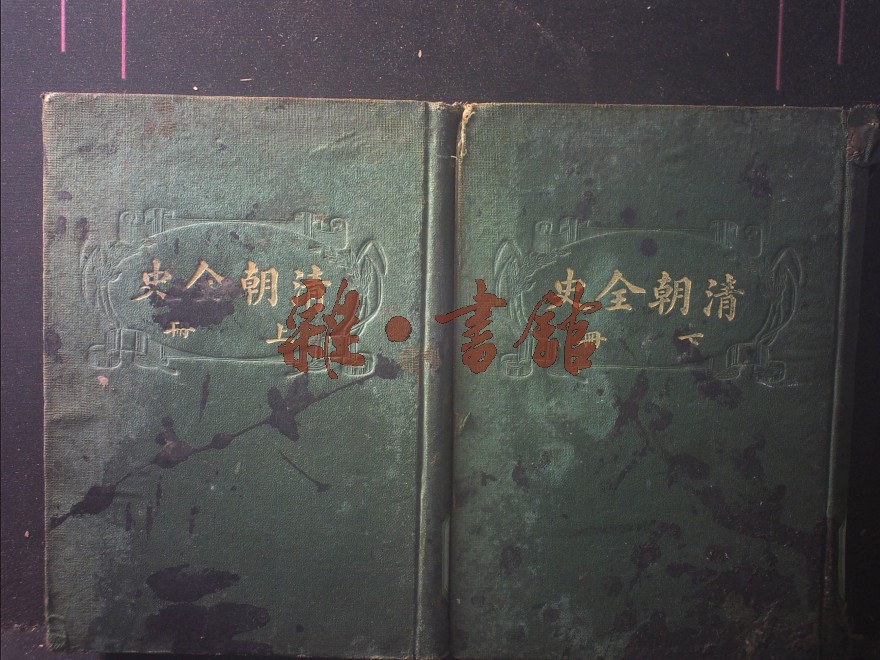 清朝全史
上冊
清朝全史
下冊
雜·書館